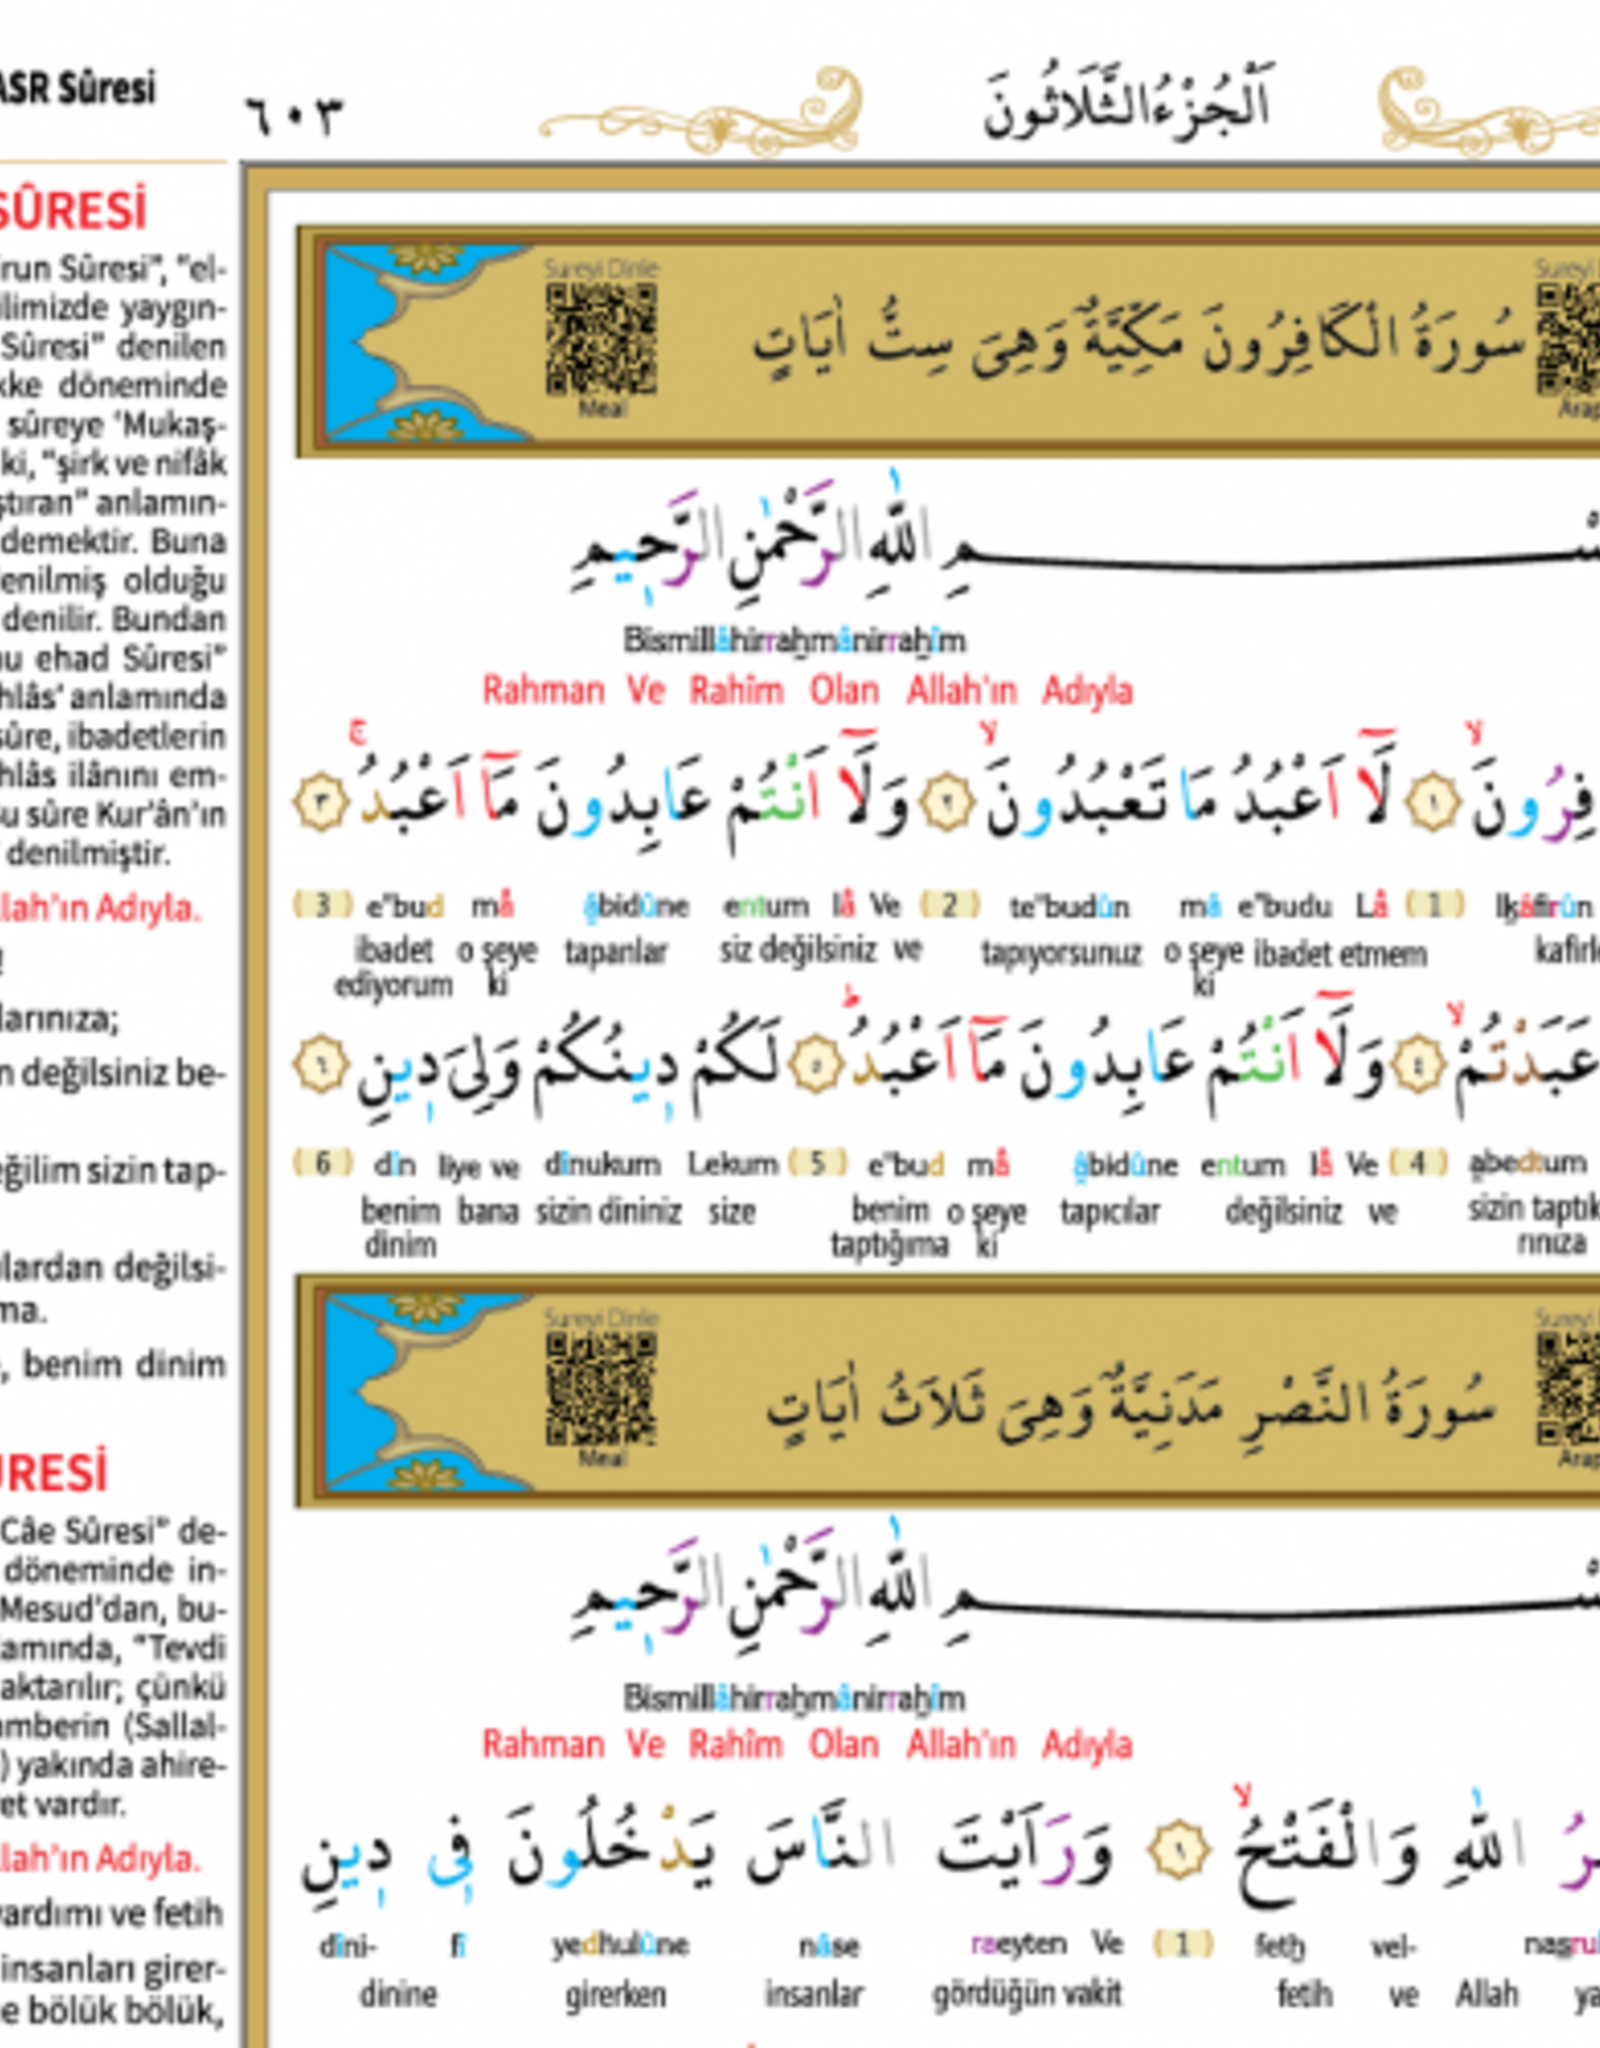 ASR Sûresi
٦٠٣
اَلْجُزْءُالثَّلَاثُونَ
SÛRESİ
run Sûresi", "el-
ilimizde yaygın-
Sûresi" denilen
kke döneminde
sûreye 'Mukaş-
ki, "şirk ve nifâk
ştıran" anlamın-
demektir. Buna
denilmiş olduğu
denilir. Bundan
u ehad Sûresi"
hlâs' anlamında
sûre, ibadetlerin
hlâs ilânını em-
u sûre Kur'ân'ın
denilmiştir.
llah'ın Adıyla.
!
larınıza;
n değilsiniz be-
eğilim sizin tap-
lardan değilsi-
ma.
, benim dinim
RESİ
Câe Sûresi" de-
döneminde in-
Mesud'dan, bu-
amında, "Tevdi
aktarılır; çünkü
amberin (Sallal-
) yakında ahire-
et vardır.
llah'ın Adıyla.
yardımı ve fetih
insanları girer-
e bölük bölük,
Sureyi Dinle
سُورَةُ الْكَافِرُونَ مَكِّيَّةٌ وَهِىَ سِتُّ اٰيَاتٍ
Meal
ـمِ اللّٰهِ الرَّحْمٰنِ الرَّح۪يمِ
Bismillâhirrahmânirrahîm
Rahman Ve Rahîm Olan Allah'ın Adıyla
فِرُونَۙ ﴿١﴾ لَٓا اَعْبُدُ مَا تَعْبُدُونَۙ ﴿٢﴾ وَلَٓا اَنْتُمْ عَابِدُونَ مَٓا اَعْبُدُۚ ﴿٣﴾
(3) e"bud mâ âbidûne entum lâ Ve (2) te"budûn mâ e"budu Lâ (1) lkâfirûn
ibadet o şeye tapanlar siz değilsiniz ve tapıyorsunuz o şeye ibadet etmem kafirle
ediyorum ki ki
عَبَدْتُمْۙ ﴿٤﴾ وَلَٓا اَنْتُمْ عَابِدُونَ مَٓا اَعْبُدُۜ ﴿٥﴾ لَكُمْ د۪ينُكُمْ وَلِىَ د۪ينِ ﴿٦﴾
(6) dîn liye ve dînukum Lekum (5) e"bud mâ âbidûne entum lâ Ve (4) abedtum
benim bana sizin dininiz size benim o şeye tapıcılar değilsiniz ve sizin taptık
dinim taptığıma ki rınıza
Sureyi Dinle
سُورَةُ النَّصْرِ مَدَنِيَّةٌ وَهِىَ ثَلَاثُ اٰيَاتٍ
Meal
ـمِ اللّٰهِ الرَّحْمٰنِ الرَّح۪يمِ
Bismillâhirrahmânirrahîm
Rahman Ve Rahîm Olan Allah'ın Adıyla
ـرُ اللّٰهِ وَالْفَتْحُۙ ﴿١﴾ وَرَاَيْتَ النَّاسَ يَدْخُلُونَ ف۪ى د۪ينِ
dîni- fî yedhulûne nâse raeyten Ve (1) feth vel- nasru
dinine girerken insanlar gördüğün vakit fetih ve Allah ya